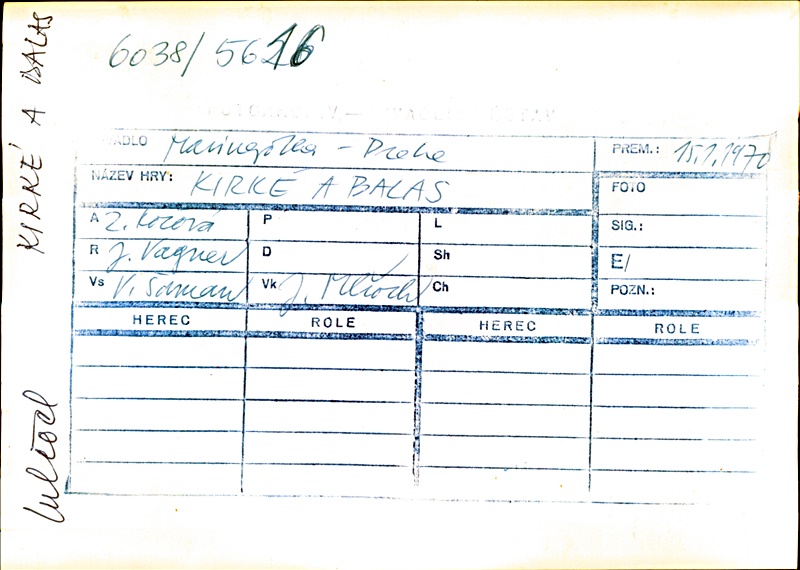 6038/5616
DIVADLO Maringotka - Praha PREM.: 15.1.1970
NÁZEV HRY: KIRKÉ A BALAS FOTO
A Z. Kozová P L SIG.:
R J. Vagner D Sh E/
Vs V. Vk J. Ch POZN.:
HEREC ROLE HEREC ROLE
KIRKÉ A BALAS